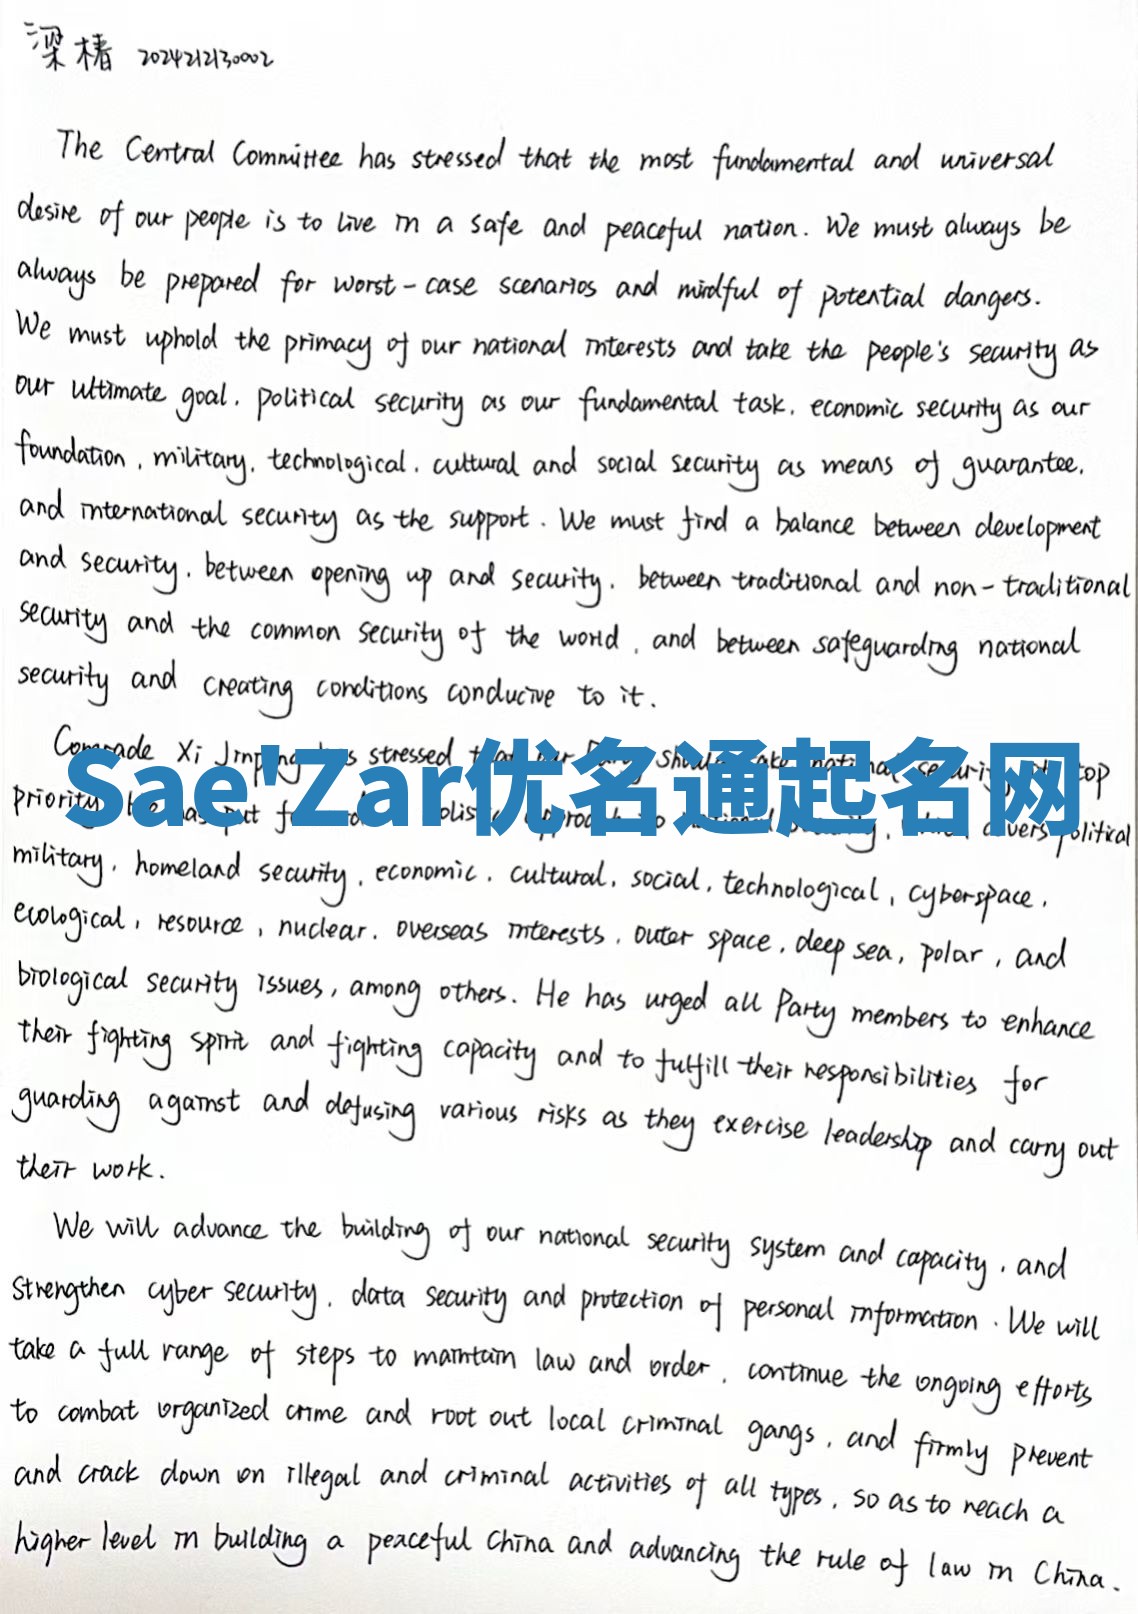 梁椿 2024212130002
The Central Committee has stressed that the most fundamental and universal
desire of our people is to live in a safe and peaceful nation. We must always be
always be prepared for worst-case scenarios and mindful of potential dangers.
We must uphold the primacy of our national interests and take the people's security as
our ultimate goal, political security as our fundamental task, economic security as our
foundation, military, technological, cultural and social security as means of guarantee,
and international security as the support. We must find a balance between development
and security, between opening up and security, between traditional and non-traditional
security and the common security of the world, and between safeguarding national
security and creating conditions conducive to it.
Comrade Xi Jinping stressed
Sae'Zar优名通起名网
top
priority put political
military, homeland security, economic, cultural, social, technological, cyberspace,
ecological, resource, nuclear, overseas interests, outer space, deep sea, polar, and
biological security issues, among others. He has urged all Party members to enhance
their fighting spirit and fighting capacity and to fulfill their responsibilities for
guarding against and defusing various risks as they exercise leadership and carry out
their work.
We will advance the building of our national security system and capacity, and
strengthen cyber security, data security and protection of personal information. We will
take a full range of steps to maintain law and order, continue the ongoing efforts
to combat organized crime and root out local criminal gangs, and firmly prevent
and crack down on illegal and criminal activities of all types, so as to reach a
higher level in building a peaceful China and advancing the rule of law in China.